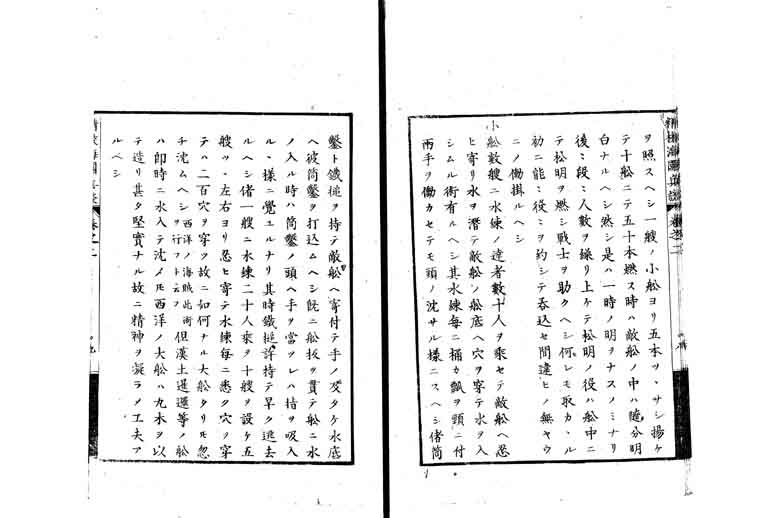 ヲ照スヘシ一艘ノ小舩ヨリ五本ツヽサシ揚ケ
テ十舩ニテ五十本燃ス時ハ敵舩ノ中ハ随分明
白ナルヘシ然シ是ハ一時ノ明ヲナスノミナリ
後〻段〻人数ヲ繰リ上ケテ松明ノ役ハ舩中ニ
テ松明ヲ燃シ戦士ヲ助クヘシ何レモ取カヽル
初ニ能〻役〻ヲ約シテ呑込セ間違ヒノ無ヤウ
ニノ働掛ルヘシ
小舩数艘ニ水練ノ達者数十人ヲ乗セテ敵舩ヘ忍
ヒ寄リ水ヲ潜テ敵舩ノ舩底ヘ穴ヲ穿テ水ヲ入
シムル術有ルヘシ其水練毎ニ桶カ瓢ヲ頸ニ付
両手ヲ働カセテモ頭ノ沈サル様ニスヘシ偖筒
鑿ト鐵槌ヲ持テ敵舩ヘ寄付テ手ノ及タケ水底
ヘ彼筒鑿ヲ打込ムヘシ既ニ舩板ヲ貫テ舩ニ水
ノ入ル時ハ筒鑿ノ頭ヘ手ヲ當ツレハ掊ヲ吸入
ルヽ様ニ覚ユルナリ其時鐵槌許持テ早ク逃去
ルヘシ偖一艘ニ水練二十人乗ヲ十艘ヲ設ケ五
艘ツヽ左右ヨリ忍ヒ寄テ水練毎ニ悉ク穴ヲ穿
テハ二百穴ヲ穿ツ故ニ如何ナル大舩タリモ忽
チ沈ムヘシ西洋ノ海賊此術ヲ行フト云フ但漢土暹邏等ノ舩
ハ即時ニ水入テ沈メモ西洋ノ大舩ハ丸木ヲ以
テ造リ甚タ堅實ナル故ニ精神ヲ凝ラメ工夫ス
ルヘシ